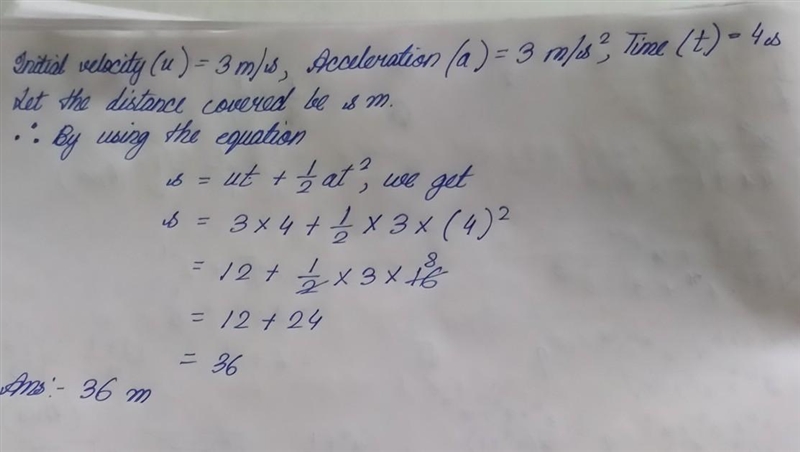 Initial velocity (u) = 3 m/s, Acceleration (a) = 3 m/s², Time (t) = 4s
Let the distance covered be s m.
∴ By using the equation
s = ut + 1/2 at², we get
s = 3 × 4 + 1/2 × 3 × (4)²
= 12 + 1/2 × 3 × 16 8
= 12 + 24
= 36
Ans:- 36 m